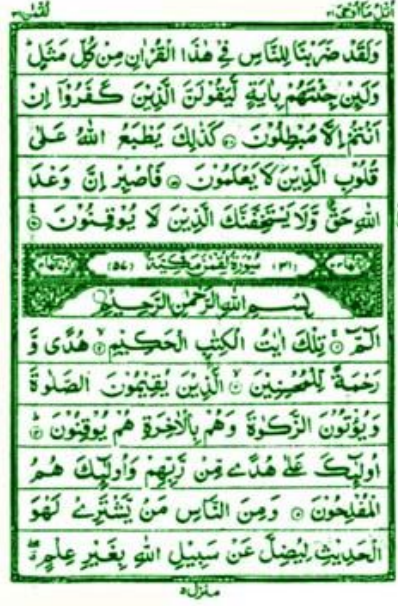 اتل ما اوحی ۲۱
لقمٰن ۳۱
وَلَقَدْ ضَرَبْنَا لِلنَّاسِ فِیْ هٰذَا الْقُرْاٰنِ مِنْ كُلِّ مَثَلٍ
وَلَئِنْ جِئْتَهُمْ بِاٰیَةٍ لَّیَقُوْلَنَّ الَّذِیْنَ كَفَرُوْۤا اِنْ
اَنْتُمْ اِلَّا مُبْطِلُوْنَ ۝ كَذٰلِكَ یَطْبَعُ اللّٰهُ عَلٰی
قُلُوْبِ الَّذِیْنَ لَا یَعْلَمُوْنَ ۝ فَاصْبِرْ اِنَّ وَعْدَ
اللّٰهِ حَقٌّ وَّلَا یَسْتَخِفَّنَّكَ الَّذِیْنَ لَا یُوْقِنُوْنَ ۝
(۳۱) سُوْرَةُ لُقْمٰنَ مَكِّیَّةٌ (۵۷)
بِسْمِ اللّٰهِ الرَّحْمٰنِ الرَّحِیْمِ
الٓمّٓ ۝ تِلْكَ اٰیٰتُ الْكِتٰبِ الْحَكِیْمِ ۝ هُدًی وَّ
رَحْمَةً لِّلْمُحْسِنِیْنَ ۝ الَّذِیْنَ یُقِیْمُوْنَ الصَّلٰوةَ
وَیُؤْتُوْنَ الزَّكٰوةَ وَهُمْ بِالْاٰخِرَةِ هُمْ یُوْقِنُوْنَ ۝
اُولٰٓئِكَ عَلٰی هُدًی مِّنْ رَّبِّهِمْ وَاُولٰٓئِكَ هُمُ
الْمُفْلِحُوْنَ ۝ وَمِنَ النَّاسِ مَنْ یَّشْتَرِیْ لَهْوَ
الْحَدِیْثِ لِیُضِلَّ عَنْ سَبِیْلِ اللّٰهِ بِغَیْرِ عِلْمٍ
منزل ۵